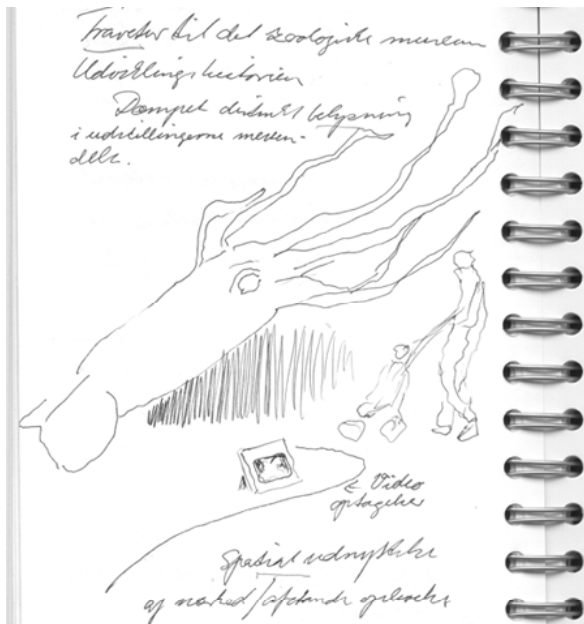 til det zoologiske museum
Udviklingshistorien
Dæmpet belysning
i udstillingerne mesten-
dels.
← Video
optagelser
Spatial udnyttelse
af nærhed/afstands oplevelse